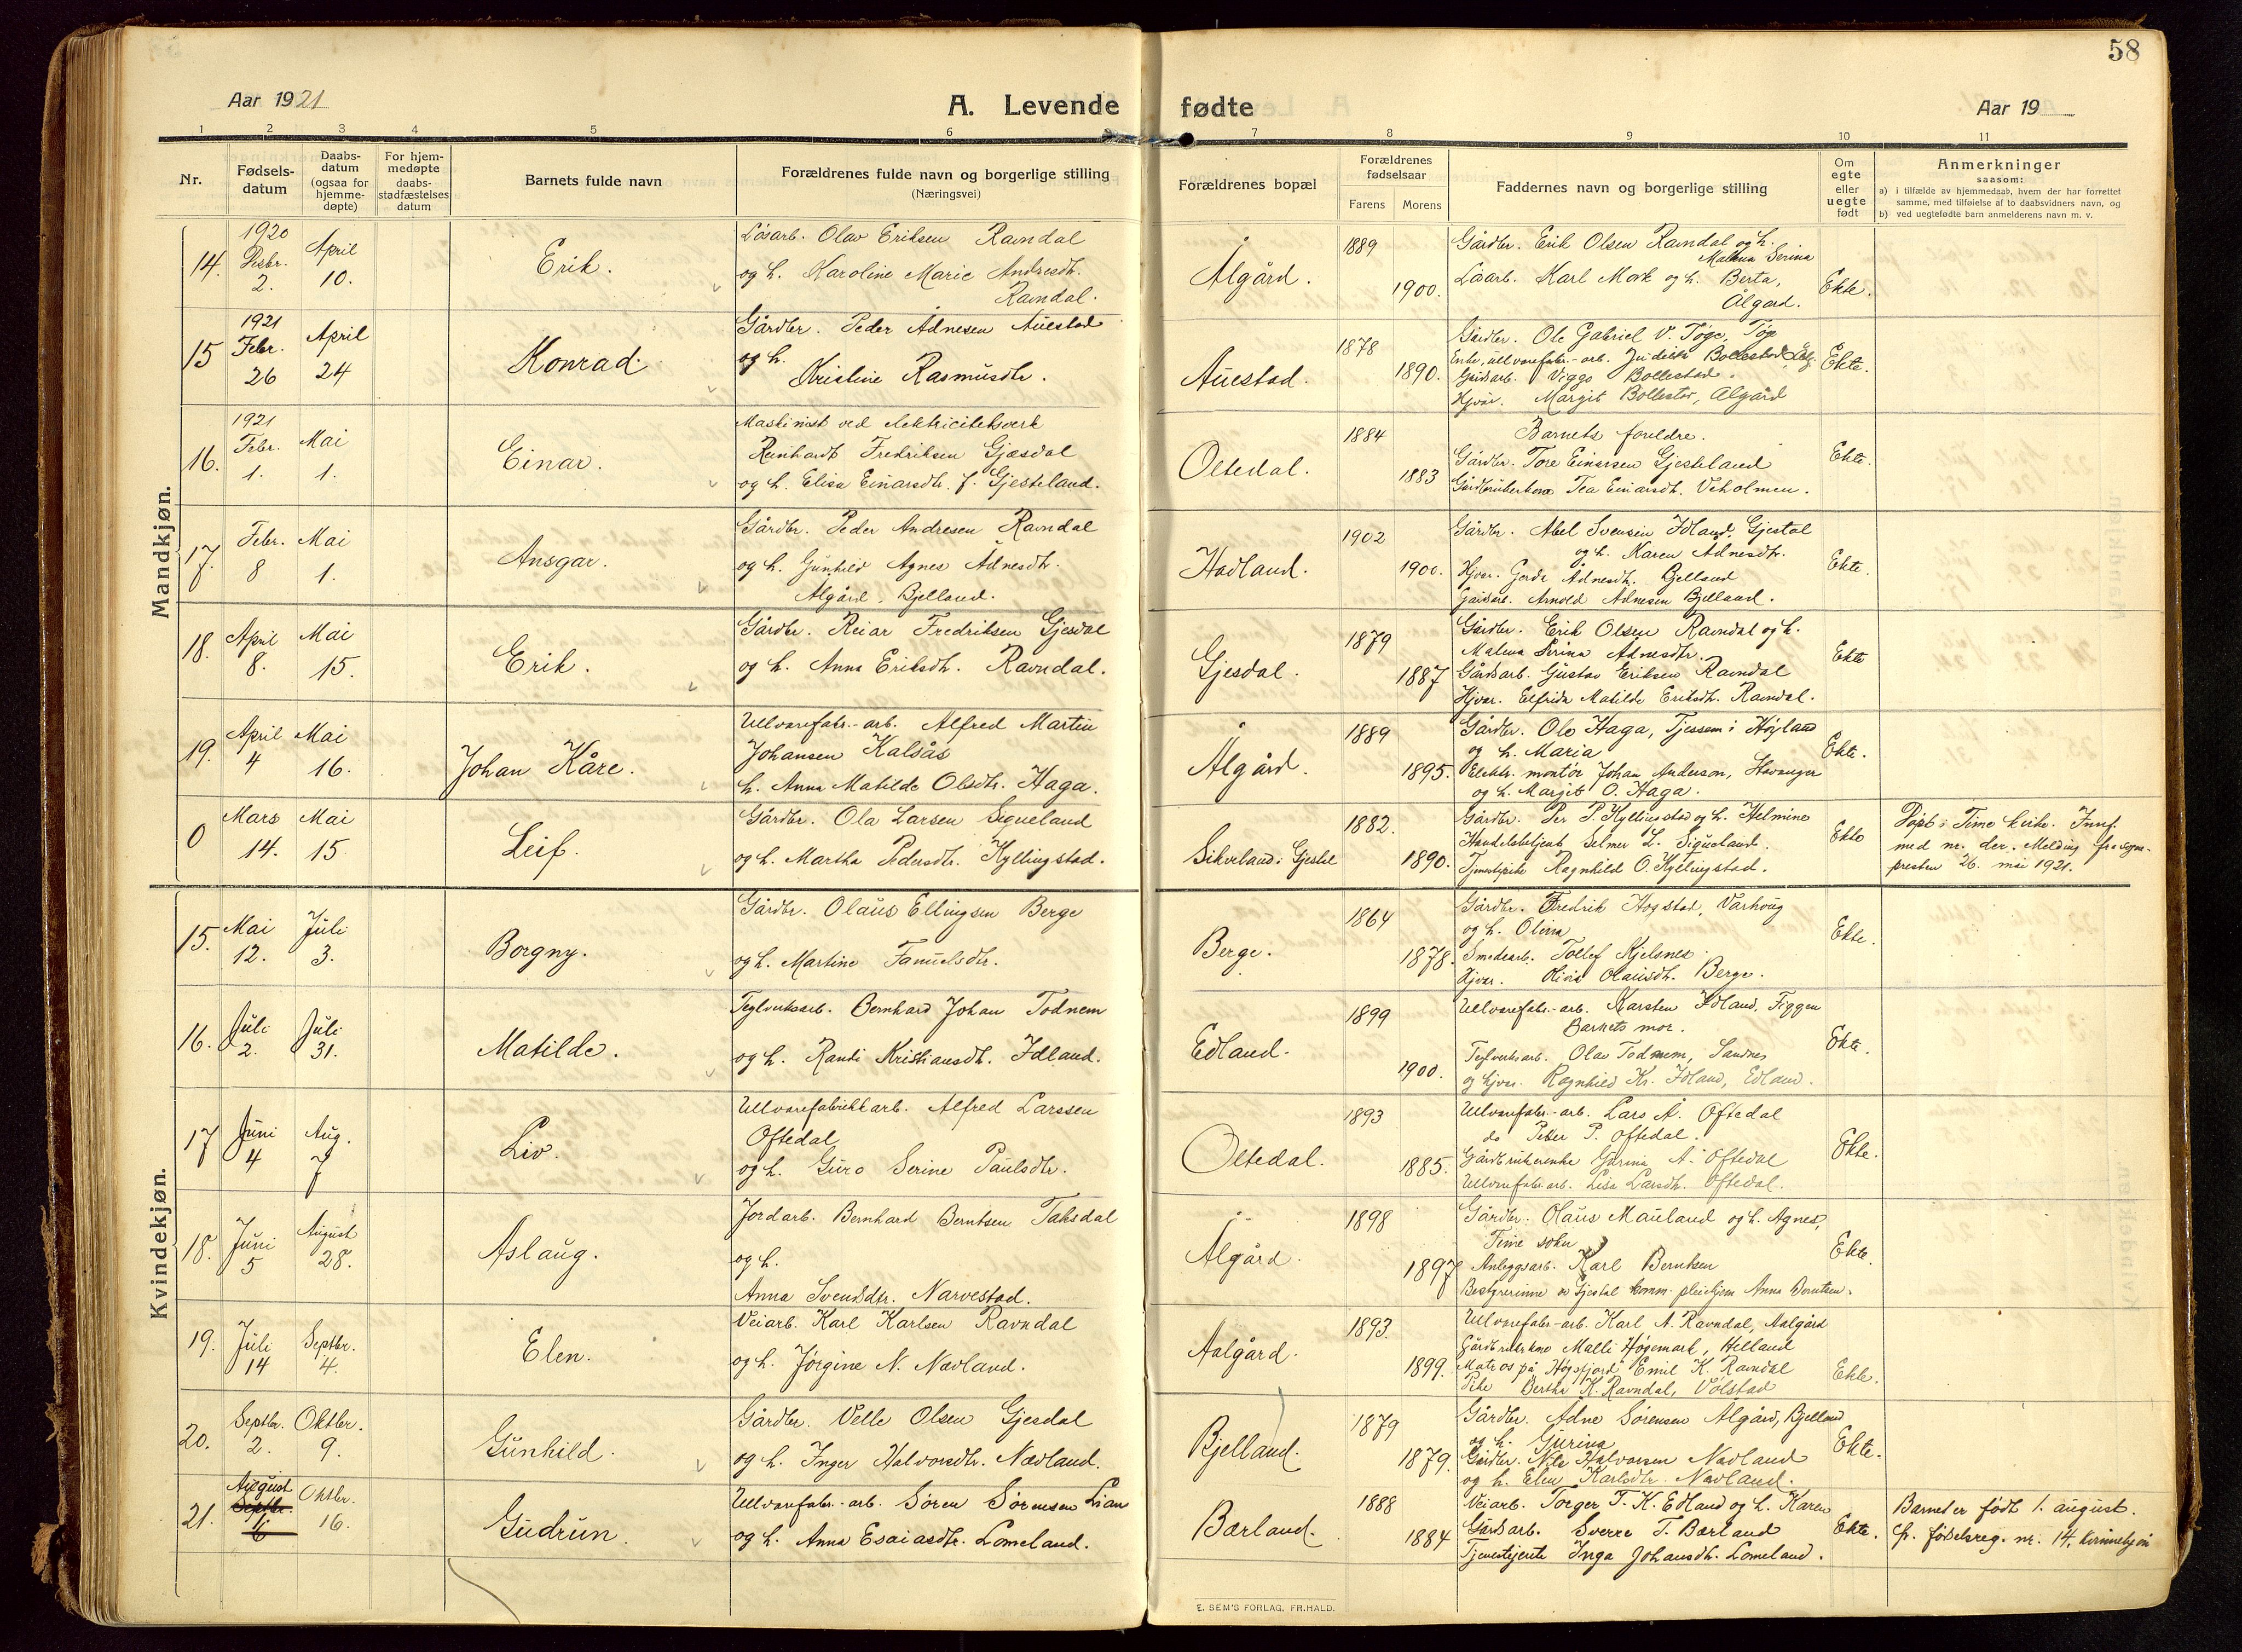 58
Aar 1921
A. Levende fødte
Aar 19
1 2 3 4 5 6 7 8 9 10 11
Nr.
Fødsels-
datum
Daabs-
datum
(ogsaa for
hjemme-
døpte)
For hjem-
medøpte
daabs-
stadfæstelses
datum
Barnets fulde navn
Forældrenes fulde navn og borgerlige stilling
(Næringsvei)
Forældrenes bopæl
Forældrenes
fødselsaar
Farens Morens
Faddernes navn og borgerlige stilling
Om
egte
eller
uegte
født
Anmerkninger
saasom:
a) i tilfælde av hjemmedaab, hvem der har forrettet
samme, med tilføielse af to daabsvidners navn, og
b) ved uegtefødte barn anmelderens navn m. v.
Mandkjøn.
14. 1920 Desbr. 2. April 10.
Erik.
Løsarb. Olav Eriksen Ravndal
og h. Karoline Marie Andresdtr.
Ravndal.
Ålgård.
1889 1900.
Gårdbr. Erik Olsen Ravndal og h.
Malena Serina
Løarb. Karl Mork og h. Berta,
Ålgård.
Ekte.
15 1921 Febr. 26 April 24
Konrad.
Gårdbr. Peder Adnesen Auestad
og h.
Kristine Rasmusdtr.
Auestad.
1878 1890.
Gårdbr. Ole Gabriel V. Tøge, Tøge
Enke, ullvarefabr.-arb. Bollestad,
Gårdsarb. Viggo Bollestad.
Hjvær. Margit Bollestad, Ålgård
Ekte.
16. 1921 Febr. 1. Mai 1.
Einar.
Maskinist ved elektricitetsverk
Reinhardt Fredriksen Gjesdal
og h. Elisa Einarsdtr. f. Gjesteland.
Oltedal.
1884 1883
Barnets foreldre.
Gårdbr. Tore Einarsen Gjesteland
Tea Einarsdtr. Veholmen.
Ekte.
17. Febr. 8 Mai 1.
Ansgar.
Gårdbr. Peder Andresen Ravndal
og h. Gunhild Agnes Adnesdtr.
Ålgård, Bjelland.
Hadland.
1902 1900.
Gårdbr. Abel Svensen Idland, Gjestal
og h. Karen Adnesdtr.
Hjvær. Gerda Adnesdtr. Bjelland
Gårdsarb. Arnold Adnesen Bjelland.
Ekte.
18. April 8. Mai 15.
Erik.
Gårdbr. Reiar Fredriksen Gjesdal
og h. Anna Eriksdtr. Ravndal.
Gjesdal.
1879 1887
Gårdbr. Erik Olsen Ravndal og h.
Malena Serina Adnesdtr.
Gårdsarb. Gustav Eriksen Ravndal
Hjvær. Elfrida Matilde Eriksdtr. Ravndal.
Ekte
19. April 4 Mai 16.
Johan Kåre.
Ullvarefabr.-arb. Alfred Martin
Johansen Kalsås
h. Anna Matilde Olsdtr. Haga.
Ålgård.
1889 1895.
Gårdbr. Ole Haga, Tjessem i Høyland
og h. Maria
Elektr. montør Johan Anderson, Stavanger
og h. Margit O. Haga.
Ekte.
0 Mars 14. Mai 15
Leif.
Gårdbr. Ola Larsen Sigveland
og h. Martha Pedersdtr. Kyllingstad.
Sikveland i Gjestal
1882. 1890.
Gårdbr. Per P. Kyllingstad og h. Helmine
Handelsbetjent Selmer L. Sigveland.
Tjenestpike Ragnhild O. Kyllingstad.
Ekte
Døpt i Time kirke. Innf.
med nr. der. Melding fra sogne-
presten 26. mai 1921.
Kvindekjøn.
15. Mai 12. Juli 3.
Borgny.
Gårdbr. Olaus Ellingsen Berge
og h. Martine Samuelsdtr.
Berge.
1864 1878.
Gårdbr. Fredrik Høgstad, Varhoug
og h. Olina
Smedearb. Tollef Kjelsnes
Hjvær. Olivia Olausdtr. Berge.
Ekte.
16. Juli 2. Juli 31.
Matilde.
Teglverksarb. Bernhard Johan Todnem
og h. Randi Kristiansdtr. Idland.
Edland.
1899 1900.
Ullvarefabr.-arb. Karsten Idland, Figgen
Barnets mor.
Teglverksarb. Olav Todnem, Sandnes
og hjvær. Ragnhild Kr. Idland, Edland.
Ekte.
17 Juni 4 Aug. 7
Liv.
Ullvarefabrikkarb. Alfred Larssen
Oftedal
og h. Guro Serine Paulsdtr.
Oltedal.
1893 1885.
Ullvarefabr.-arb. Lars A. Oftedal
do Peter P. Oftedal.
Gårdbrukerenke Gurina A. Oftedal
Ullvarefabr.arb. Lisa Larsdtr. Oftedal.
Ekte.
18. Juni 5 August 28.
Aslaug.
Jordarb. Bernhard Berntsen Taksdal
og h.
Anna Svendsdtr. Narvestad.
Ålgård.
1898 1897
Gårdbr. Olaus Mauland og h. Agnes,
Time sokn
Anleggsarb. Karl Berntsen
Bestyrerinne av Gjestal komm. pleiehjem Anna Berntsen.
Ekte.
19. Juli 14 Septbr. 4.
Elen.
Veiarb. Karl Karlsen Ravndal
og h. Jørgine N. Nævland.
Aalgård.
1893. 1899.
Ullvarefabr.-arb. Karl A. Ravndal, Aalgård
Gårdbrukerkone Malli Høgemark, Helland
Matros på "Høgsfjord" Emil K. Ravndal
Pike Bertha K. Ravndal, Vølstad
Ekte.
20. Septbr. 2. Oktbr. 9.
Gunhild.
Gårdbr. Velle Olsen Gjesdal
og h. Inger Halvorsdtr. Nævland.
Bjelland.
1879 1879.
Gårdbr. Adne Sørensen Ålgård, Bjelland
og h. Gurina
Gårdbr. Nils Halvorsen Nævland
og h. Elen Karlsdtr. Nævland.
Ekte.
21. August Septbr. 1. Oktbr. 16.
Gudrun.
Ullvarefabr.-arb. Søren Sørensen Lian
og h. Anna Esaiasdtr. Lomeland.
Bærland.
1888 1884
Veiarb. Torger T. K. Edland og h. Karen
Gårdsarb. Sverre T. Bærland
Tjenestejente Inga Johansdtr. Lomeland.
Ekte.
Barnet er født 1. august.
Cfr. fødselsreg. nr. 14, kvinnekjøn
E. SEM'S FORLAG, FR.HALD.